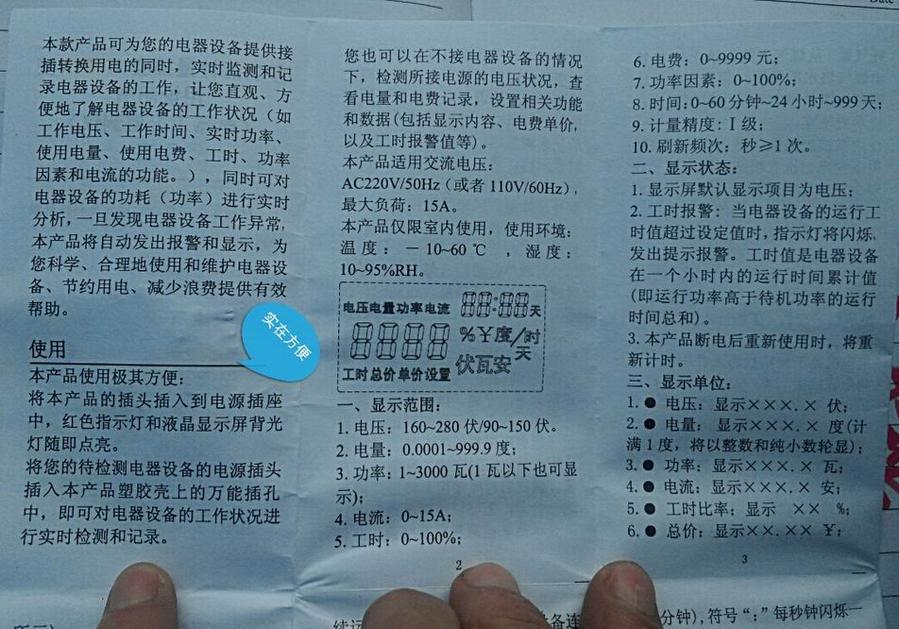 Date
本款产品可为您的电器设备提供接
插转换用电的同时，实时监测和记
录电器设备的工作，让您直观、方
便地了解电器设备的工作状况（如
工作电压、工作时间、实时功率、
使用电量、使用电费、工时、功率
因素和电流的功能。），同时可对
电器设备的功耗（功率）进行实时
分析，一旦发现电器设备工作异常，
本产品将自动发出报警和显示，为
您科学、合理地使用和维护电器设
备、节约用电、减少浪费提供有效
帮助。
实在方便
使用
本产品使用极其方便：
将本产品的插头插入到电源插座
中，红色指示灯和液晶显示屏背光
灯随即点亮。
将您的待检测电器设备的电源插头
插入本产品塑胶壳上的万能插孔
中，即可对电器设备的工作状况进
行实时检测和记录。
您也可以在不接电器设备的情况
下，检测所接电源的电压状况，查
看电量和电费记录，设置相关功能
和数据(包括显示内容、电费单价,
以及工时报警值等)。
本产品适用交流电压：
AC220V/50Hz（或者110V/60Hz），
最大负荷：15A。
本产品仅限室内使用，使用环境：
温度：－10~60℃，湿度：
10~95%RH。
电压电量功率电流 88:88天
8888 %￥度/时
天
伏瓦安
工时总价单价设置
一、显示范围：
1. 电压：160~280伏/90~150伏。
2. 电量：0.0001~999.9度；
3. 功率：1~3000瓦(1瓦以下也可显
示)；
4. 电流：0~15A；
5. 工时：0~100%；
2
6. 电费：0~9999元；
7. 功率因素：0~100%；
8. 时间：0~60分钟~24小时~999天；
9. 计量精度：I级；
10. 刷新频次：秒≥1次。
二、显示状态：
1. 显示屏默认显示项目为电压；
2. 工时报警：当电器设备的运行工
时值超过设定值时，指示灯将闪烁,
发出提示报警。工时值是电器设备
在一个小时内的运行时间累计值
(即运行功率高于待机功率的运行
时间总和)。
3. 本产品断电后重新使用时，将重
新计时。
三、显示单位：
1. ● 电压：显示×××.× 伏；
2. ● 电量：显示×××.× 度(计
满1度，将以整数和纯小数轮显)；
3. ● 功率：显示×××.× 瓦；
4. ● 电流：显示×××.× 安；
5. ● 工时比率：显示 ×× %；
6. ● 总价：显示××.×× ￥；
3
分钟)，符号“：”每秒钟闪烁一